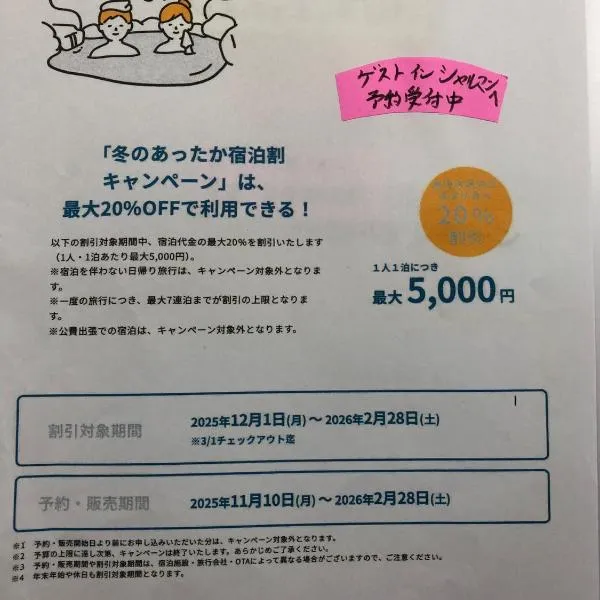 ゲスト イン シャルマンへ
予約受付中
「冬のあったか宿泊割
キャンペーン」は、
最大20%OFFで利用できる！
以下の割引対象期間中、宿泊代金の最大20%を割引いたします
（1人・1泊あたり最大5,000円）。
※宿泊を伴わない日帰り旅行は、キャンペーン対象外となりま
す。
※一度の旅行につき、最大7連泊までが割引の上限となりま
す。
※公費出張での宿泊は、キャンペーン対象外となります。
20%
割引
1人1泊につき
最大 5,000 円
割引対象期間
2025年12月1日(月)～2026年2月28日(土)
※3/1チェックアウト迄
予約・販売期間
2025年11月10日(月)～2026年2月28日(土)
※1 予約・販売開始日より前にお申し込みいただいた分は、キャンペーン対象外となります。
※2 予算の上限に達し次第、キャンペーンは終了いたします。あらかじめご了承ください。
※3 予約・販売期間や割引対象期間は、宿泊施設・旅行会社・OTAによって異なる場合がございますので、ご注意ください。
※4 年末年始や休日も割引対象期間となります。